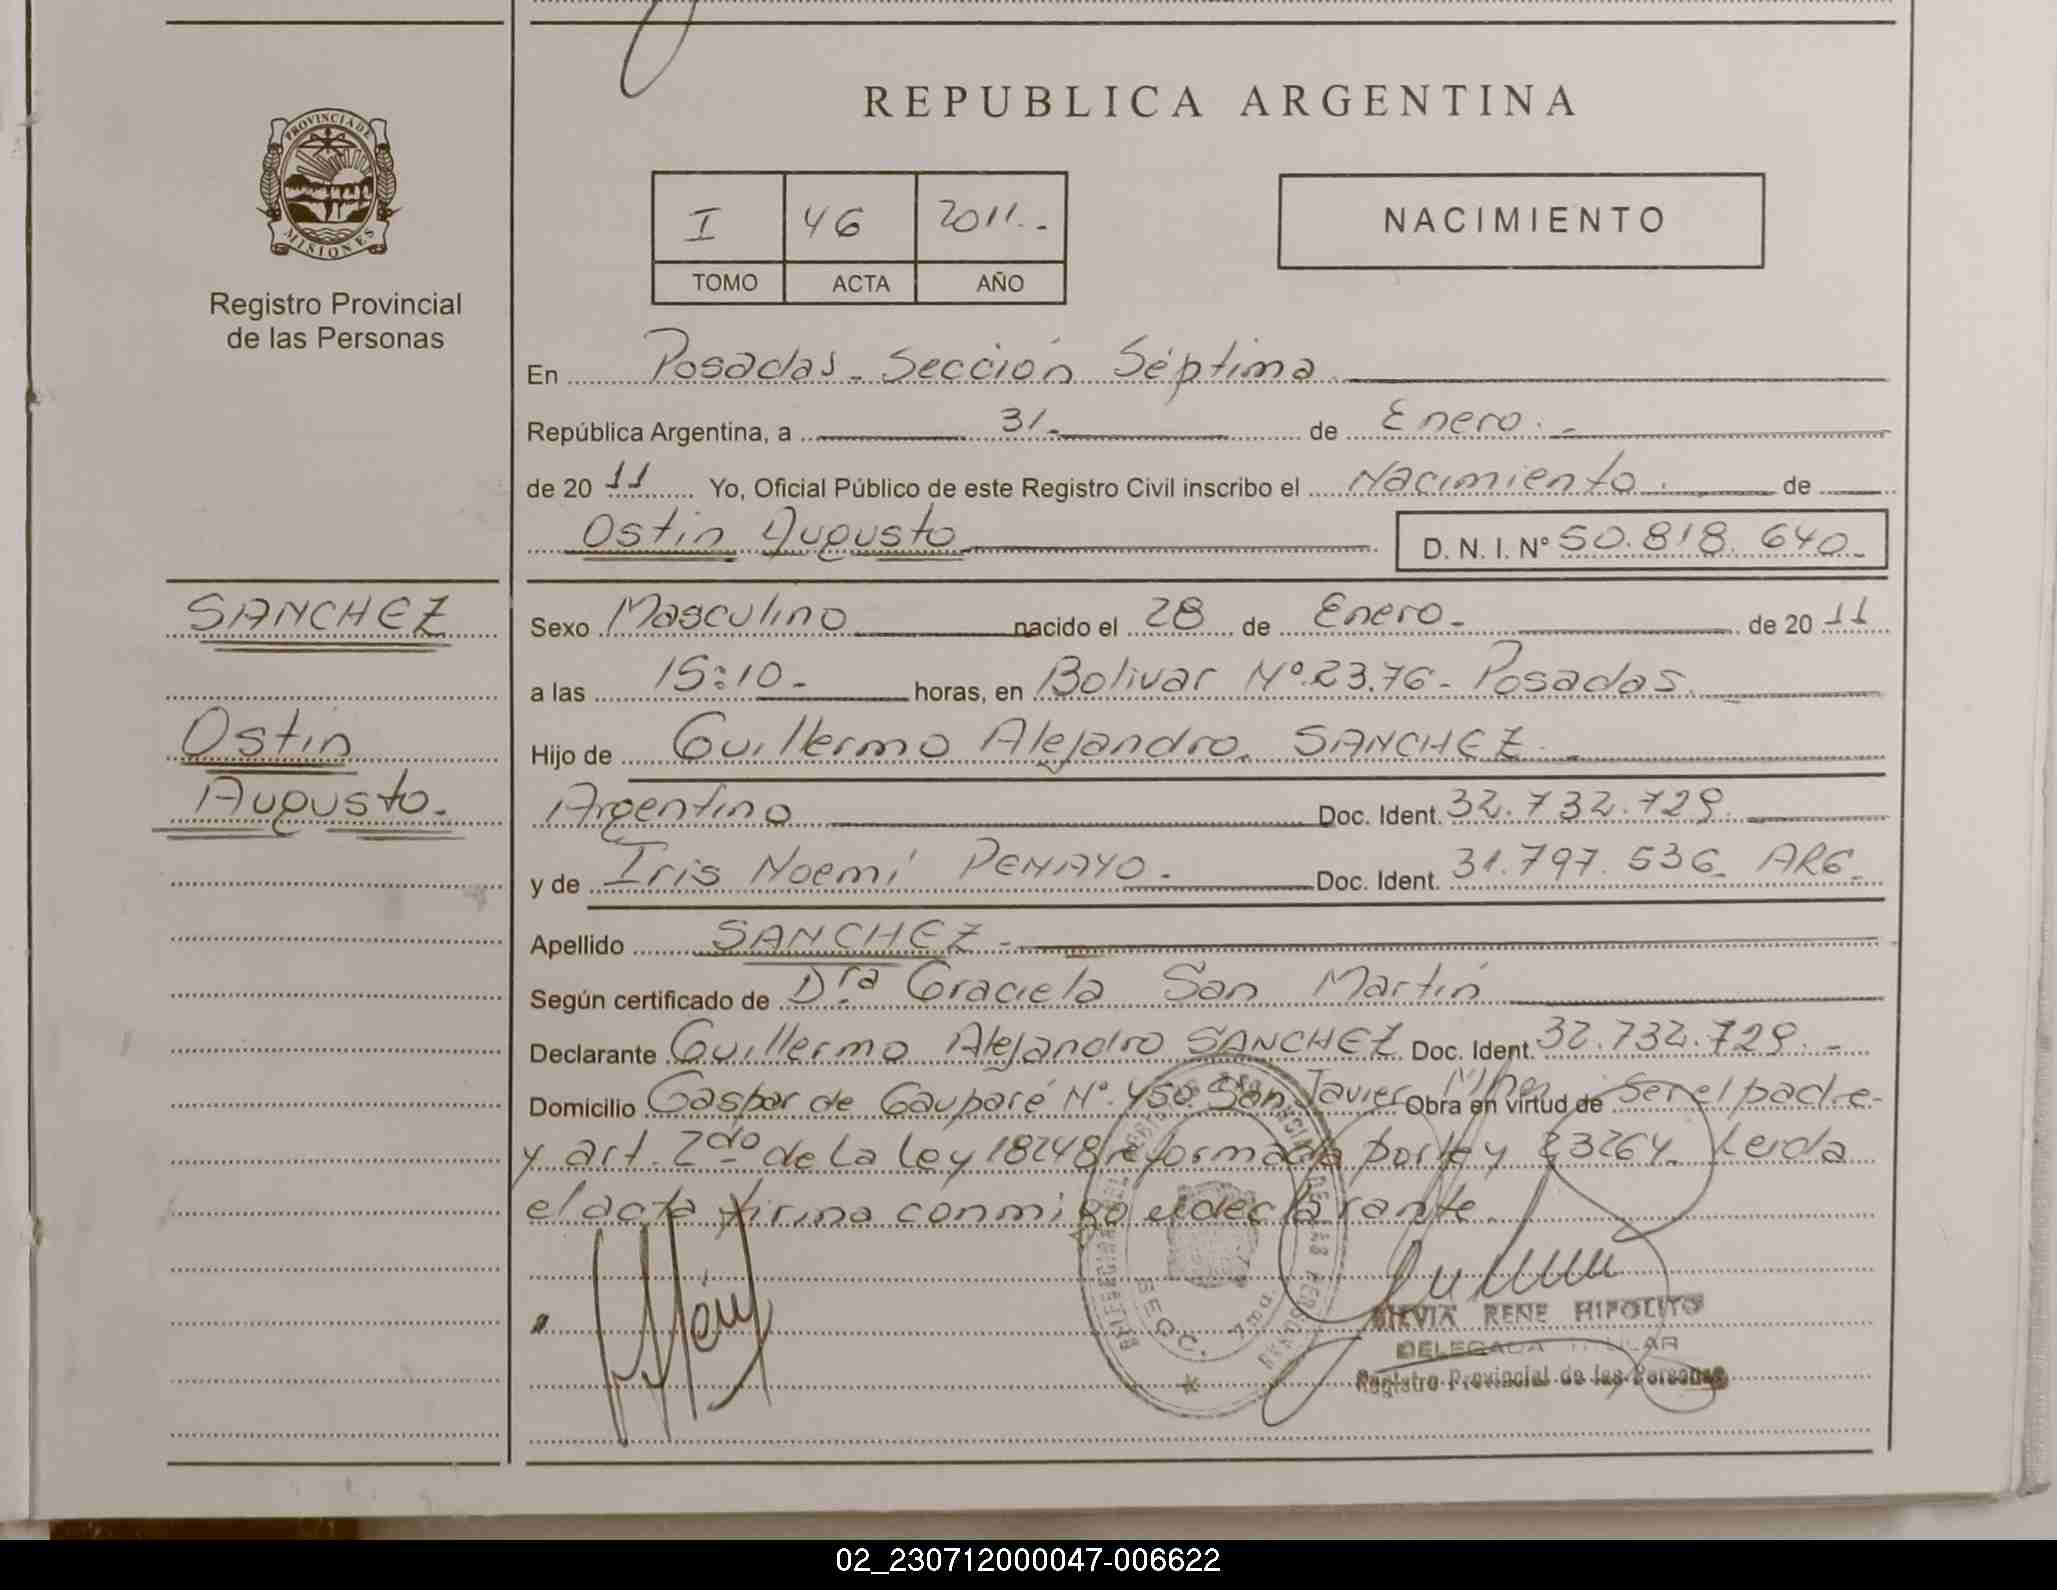 REPUBLICA ARGENTINA
PROVINCIA DE
MISIONES
Registro Provincial
de las Personas
I 46 2011.-
TOMO ACTA AÑO
NACIMIENTO
En Posadas - Sección Séptima
República Argentina, a 31 de Enero.-
de 20 11 Yo, Oficial Público de este Registro Civil inscribo el Nacimiento de
Ostin Augusto D. N. I. Nº 50.818.640-
SANCHEZ
Ostin
Augusto.
Sexo Masculino nacido el 28 de Enero- de 20 11
a las 15:10- horas, en Bolivar Nº 23.76- Posadas.
Hijo de Guillermo Alejandro. SANCHEZ.
Argentino Doc. Ident. 32.732.729.
y de Iris Noemí PENAYO. Doc. Ident. 31.797.536- ARG-
Apellido SANCHEZ-
Según certificado de Dra Graciela San Martín
Declarante Guillermo Alejandro SANCHEZ Doc. Ident. 32.732.729.-
Domicilio Gaspar de Guaparé Nº 450 San Javier Obra en virtud de ser el padre-
y art. 2do de la Ley 18248 reformada por ley 23264. Leida
el acta firma conmigo el declarante
SECC. 7ma.
SILVIA RENE HIPOLITO
DELEGADA TITULAR
Registro Provincial de las Personas
02_230712000047-006622